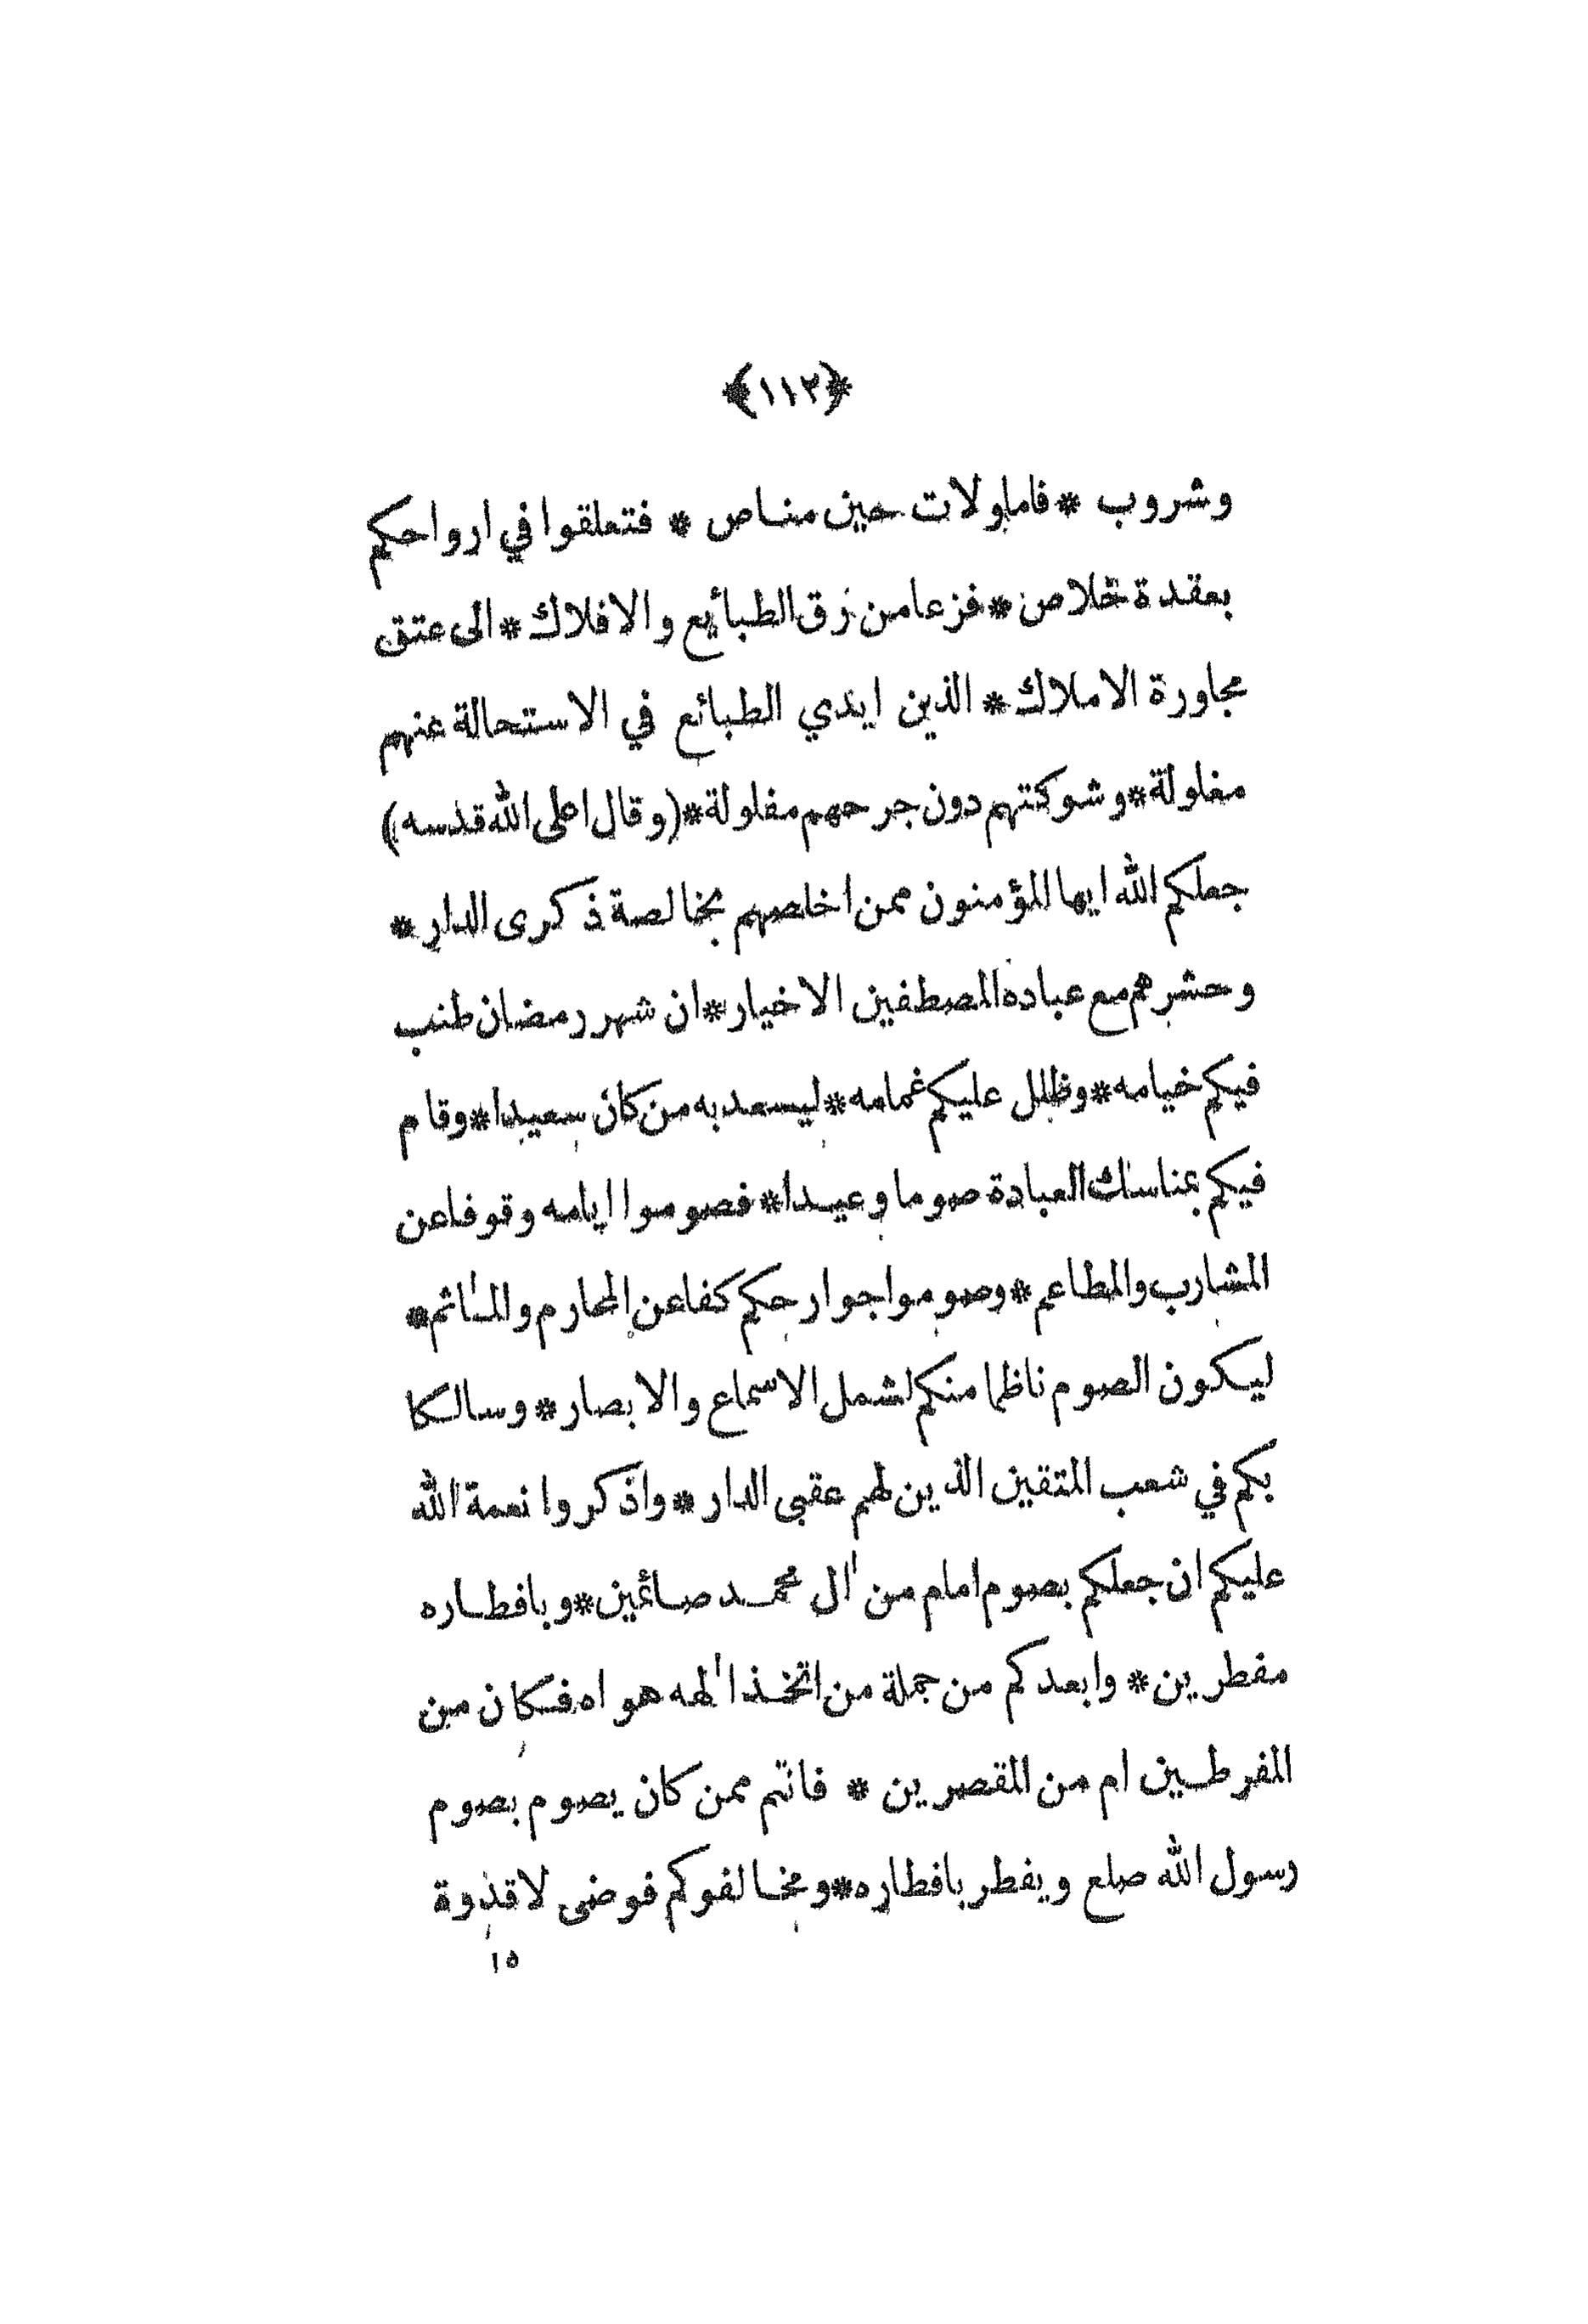 ﴿١١٢﴾
وشروب * فاما ولات حين مناص * فتعلقوا في ارواحكم
بعقدة خلاص * فزعا من رق الطبائع والافلاك * الى عتق
مجاورة الاملاك * الذين ايدي الطبائع في الاستحالة عنهم
مغلولة * وشوكتهم دون جرحهم مفلولة * (وقال اعلى الله قدسه)
جعلكم الله ايها المؤمنون ممن اخلصهم بخالصة ذكرى الدار *
وحشرهم مع عباده المصطفين الاخيار * ان شهر رمضان طنب
فيكم خيامه * وظلل عليكم غمامه * ليسعد به من كان سعيدا * وقام
فيكم بمناسك العبادة صوما وعيدا * فصوموا ايامه وقوفا عن
المشارب والمطاعم * وصوموا جوارحكم كفا عن المحارم والمآثم *
ليكون الصوم ناظما منكم لشمل الاسماع والابصار * وسالكا
بكم في شعب المتقين الذين لهم عقبى الدار * واذكروا نعمة الله
عليكم ان جعلكم بصوم امام من اٰل محمد صائمين * وبافطاره
مفطرين * وابعدكم من جملة من اتخذ اٰلهه هواه فكان من
المفرطين ام من المقصرين * فانتم ممن كان يصوم بصوم
رسول الله صلع ويفطر بافطاره * ومخالفوكم فوضى لا قدوة
١٥